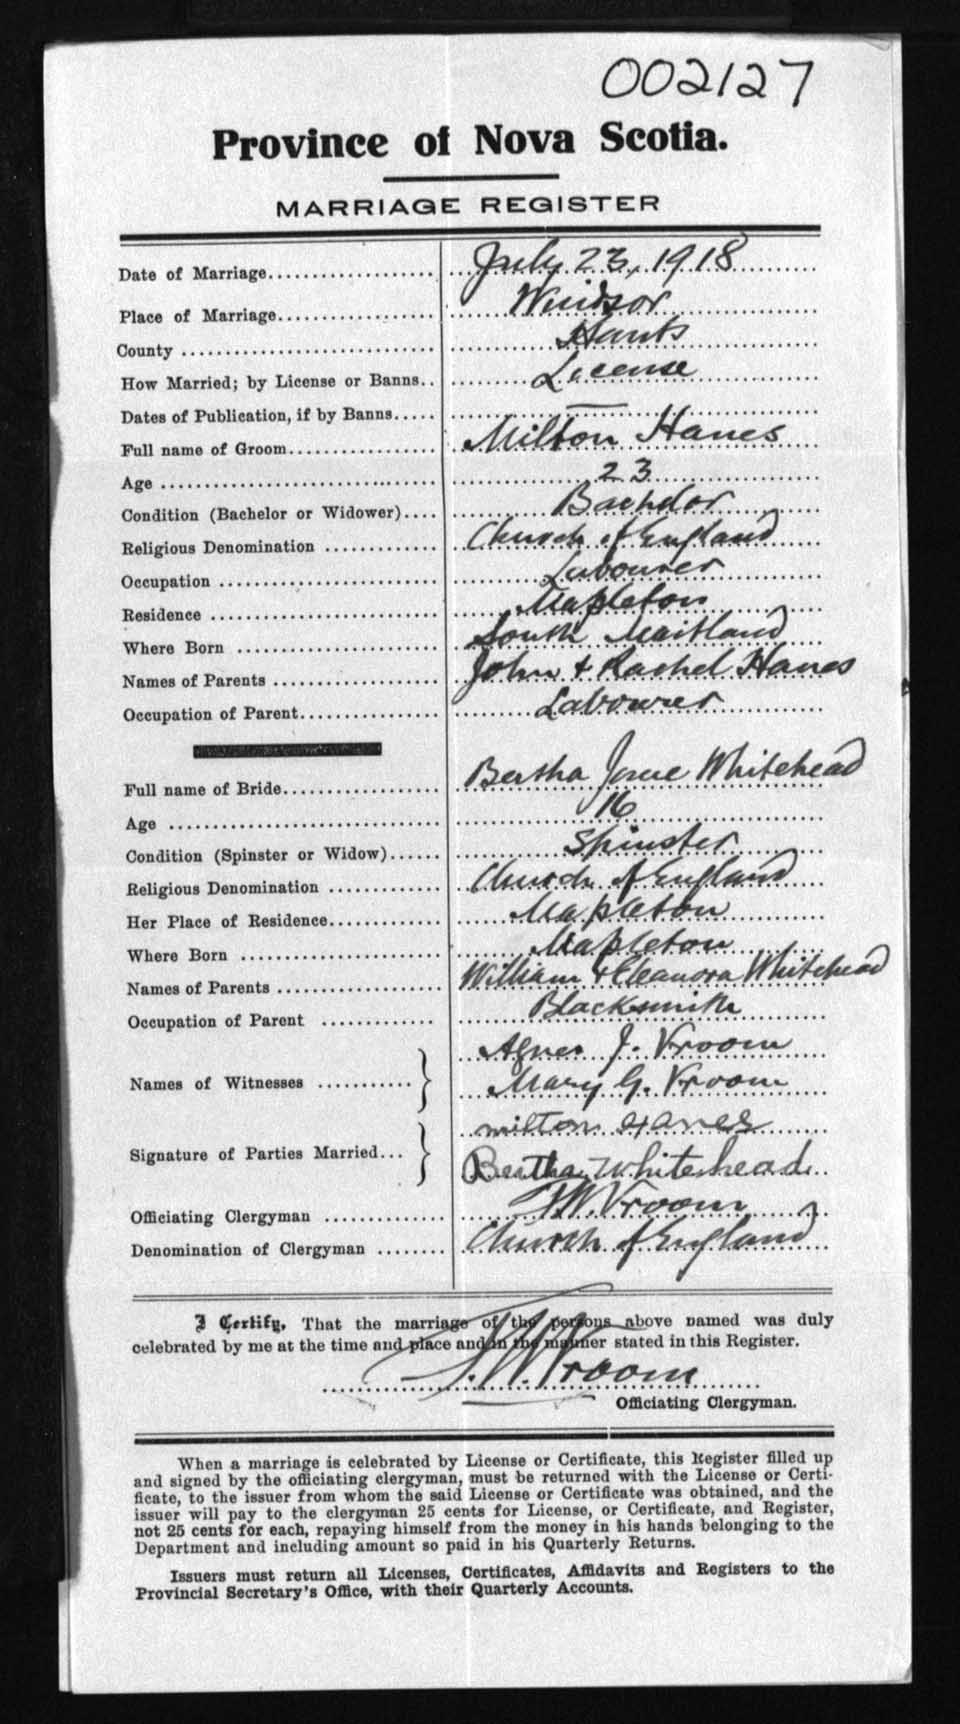 002127
Province of Nova Scotia.
MARRIAGE REGISTER
Date of Marriage.................... July 23, 1918
Place of Marriage.................... Windsor
County .................... Hants
How Married; by License or Banns.. License
Dates of Publication, if by Banns..... —
Full name of Groom.................... Milton Hanes
Age .................... 23
Condition (Bachelor or Widower).... Bachelor
Religious Denomination ............. Church of England
Occupation .................... Labourer
Residence .................... Mapleton
Where Born .................... South Maitland
Names of Parents .................... John & Rachel Hanes
Occupation of Parent................. Labourer
Full name of Bride................... Bertha Jane Whitehead
Age .................... 16
Condition (Spinster or Widow)...... Spinster
Religious Denomination ............. Church of England
Her Place of Residence............. Mapleton
Where Born .................... Mapleton
Names of Parents .................... William & Eleanora Whitehead
Occupation of Parent ............. Blacksmith
Names of Witnesses ........... } Agnes J. Vroom
Mary G. Vroom
Signature of Parties Married... } milton Hanes
Bertha Whitehead
Officiating Clergyman .............. F.W. Vroom
Denomination of Clergyman ........ Church of England
I Certify, That the marriage of the persons above named was duly
celebrated by me at the time and place and in the manner stated in this Register.
F.W. Vroom
Officiating Clergyman.
When a marriage is celebrated by License or Certificate, this Register filled up
and signed by the officiating clergyman, must be returned with the License or Certi-
ficate, to the issuer from whom the said License or Certificate was obtained, and the
issuer will pay to the clergyman 25 cents for License, or Certificate, and Register,
not 25 cents for each, repaying himself from the money in his hands belonging to the
Department and including amount so paid in his Quarterly Returns.
Issuers must return all Licenses, Certificates, Affidavits and Registers to the
Provincial Secretary's Office, with their Quarterly Accounts.